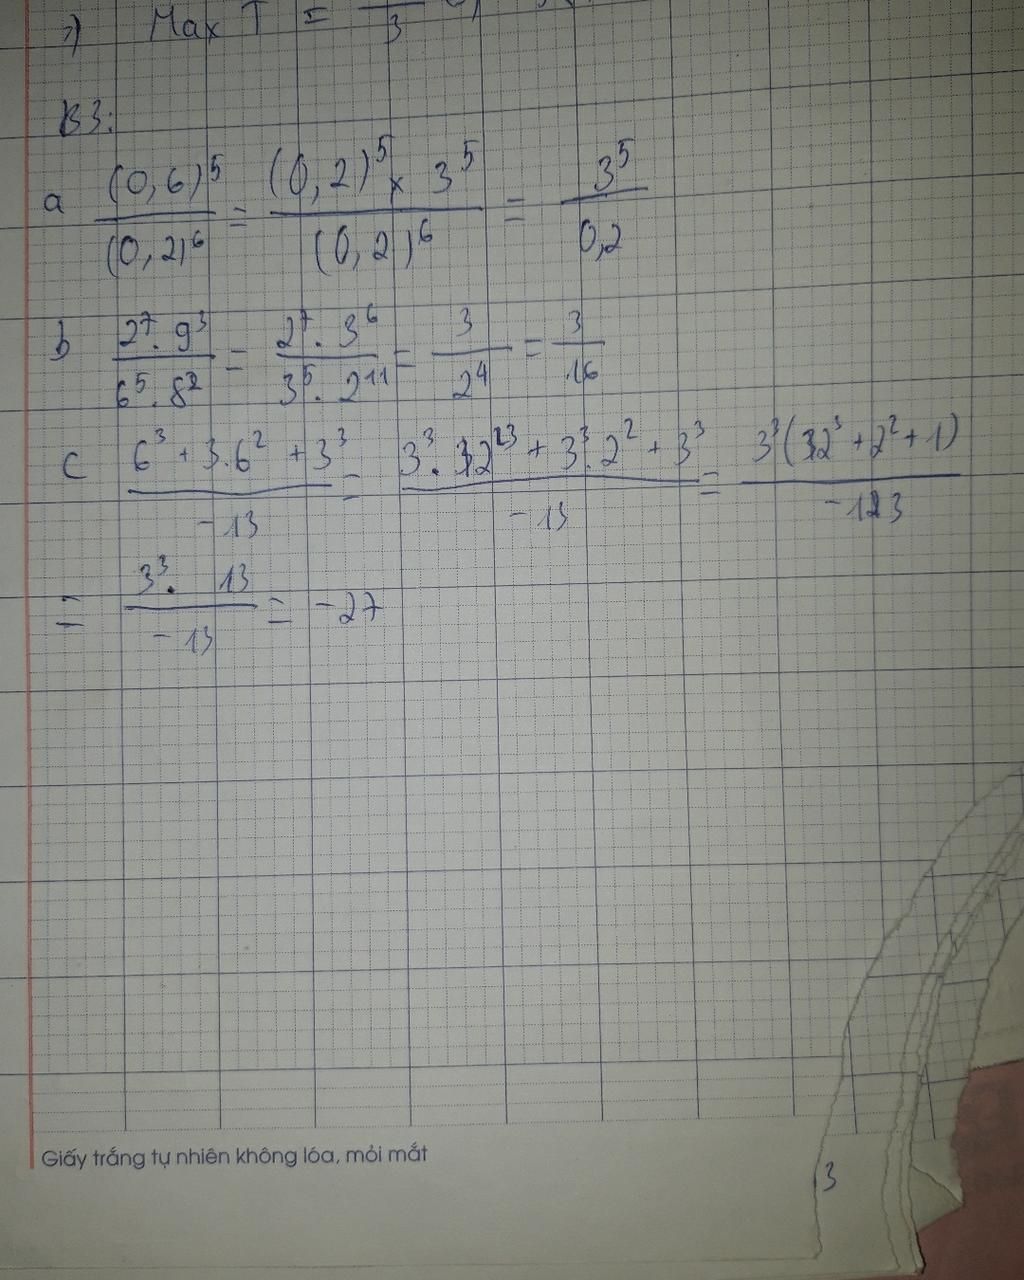 =) Max T = 3
B3:
a (0,6)^5 / (0,2)^6 = (0,2)^5 × 3^5 / (0,2)^6 = 3^5 / 0,2
b 2^7 . 9^3 / 6^5 . 8^2 = 2^7 . 3^6 / 3^5 . 2^11 = 3 / 2^4 = 3 / 16
c 6^3 + 3.6^2 + 3^3 / -13 = 3^3 . 2^3 + 3^3 . 2^2 + 3^3 / -13 = 3^3 (2^3 + 2^2 + 1) / -13
= 3^3 . 13 / -13 = -27
Giấy trắng tự nhiên không lóa, mỏi mắt
3